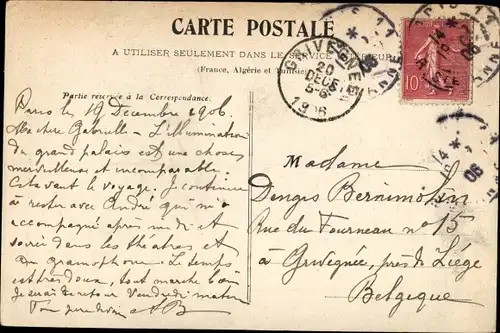 CARTE POSTALE
A UTILISER SEULEMENT DANS LE SERVICE
(France, Algérie et Tunisie)
Partie réservée à la Correspondance.
20
DEC
5-6
1906
10
14
06
14
06
Paris le 19 Décembre 1906
Ma chère Gabrielle - L'illumination
du grand palais est une chose
merveilleuse et incomparable.
Cela vaut le voyage. Je continue
à rester avec André qui m'a
accompagné après midi et
soirée dans les théâtres et
au gramophone. Le temps
est très doux, tout marche bien
Je serai de retour Vendredi matin
Madame
Denges Bernimolin
Rue du Fourneau n° 15
à Grivegnée, près de Liège
Belgique